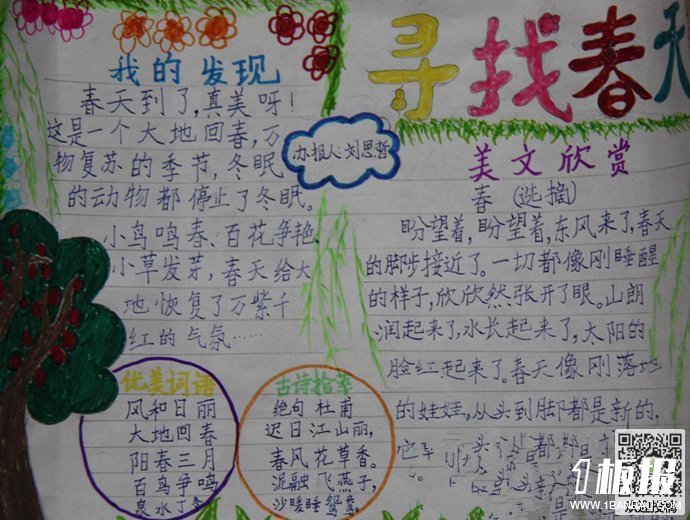 寻找春天
我的发现
春天到了,真美呀!
这是一个大地回春,万
物复苏的季节,冬眠
的动物都停止了冬眠。
小鸟鸣春、百花争艳
小草发芽,春天给大
地恢复了万紫千
红的气氛……
办报人:刘思哲
美文欣赏
春(选摘)
盼望着,盼望着,东风来了,春天
的脚步接近了。一切都像刚睡醒
的样子,欣欣然张开了眼。山朗
润起来了,水长起来了,太阳的
脸红起来了。春天像刚落地
的娃娃,从头到脚都是新的,
它
优美词语
风和日丽
大地回春
阳春三月
百鸟争鸣
泉水丁冬
古诗指萃
绝句 杜甫
迟日江山丽,
春风花草香。
泥融飞燕子,
沙暖睡鸳鸯。
板报
WWW.1BANBAO.COM